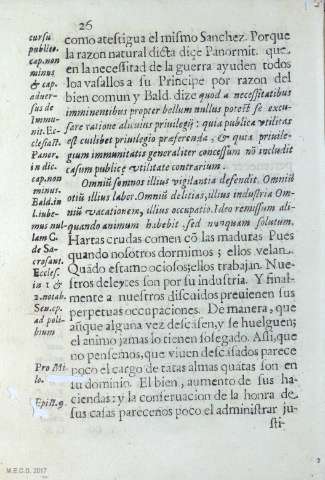 26
cursu
publico,
cap. non
minus
& cap.
aduer-
sus de
Immu-
nit. Ec-
clesiast.
Panor.
in dic.
cap. non
minus.
Bald. in
l. iube-
mus nul-
lam C.
de Sa-
crosanct.
Eccles.
in 1 &
2. notab.
Sen. ep.
ad poli-
bium
Pro Mi-
lo.
Epist. 9.
como atestigua el mismo Sanchez. Porque
la razon natural dicta dize Panormit. que,
en la necessitad de la guerra ayuden todos
los vasallos a su Principe por razon del
bien comun y Bald. dize quod a necessitatibus
imminentibus propter bellum nullus potest se excu-
sare ratione alicuius priuilegij: quia publica vtilitas
est cuilibet priuilegio præferenda, & quia priuile-
gium immunitatis generaliter concessum nō includit
casum publicę vtilitate contrarium.
Omniū somnos illius vigilantia defendit. Omniū
otiū illius labor. Omniū delitias, illius industria Om-
niū vacationem, illius occupatio. Ideo remissum ali-
quando animum habebit sed nunquam solutum.
Hartas crudas comen cō las maduras Pues
quando nosotros dormimos; ellos velan.
Quādo estamo ociosos; ellos trabajan. Nue-
stros deleytes son por su industria. Y final-
mente a nuestros discuidos preuienen sus
perpetuas occupaciones. De manera, que
aūque alguna vez descāsen, y se huelguen;
el animo jamas lo tienen sosegado. Assi, que
no pensemos, que viuen descāsados parece
poco el cargo de tātas almas quātas son en
su dominio. El bien, aumento de sus ha-
ciendas: y la conseruacion de la honra de
sus casas parecenos poco el administrar ju-
sti-
M.E.C.D. 2017